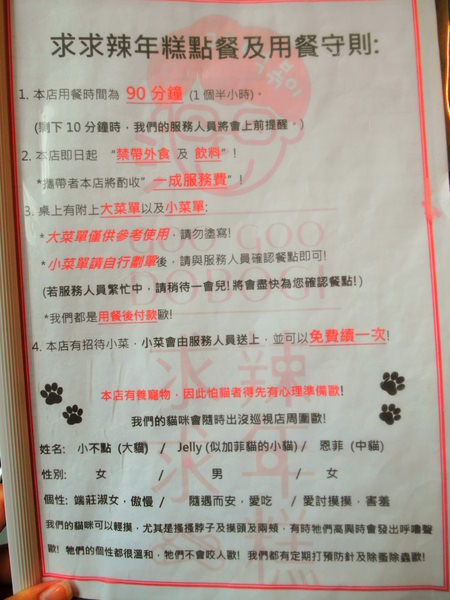 求求辣年糕點餐及用餐守則:
1. 本店用餐時間為 90 分鐘 (1 個半小時)。
(剩下 10 分鐘時，我們的服務人員將會上前提醒。)
2. 本店即日起 “禁帶外食 及 飲料”！
*攜帶者本店將酌收” 一成服務費”！
3. 桌上有附上大菜單以及小菜單:
*大菜單僅供參考使用，請勿塗寫!
*小菜單請自行劃單後，請與服務人員確認餐點即可!
(若服務人員繁忙中，請稍待一會兒! 將會盡快為您確認餐點! )
*我們都是用餐後付款歐!
4. 本店有招待小菜，小菜會由服務人員送上，並可以免費續一次!
本店有養寵物，因此怕貓者得先有心理準備歐!
我們的貓咪會隨時出沒巡視店周圍歐!
姓名: 小不點 (大貓) / Jelly (似加菲貓的小貓) / 恩菲 (中貓)
性別: 女 / 男 / 女
個性: 端莊淑女，傲慢 / 隨遇而安，愛吃 / 愛討摸摸，害羞
我們的貓咪可以輕摸，尤其是搔搔脖子及摸頭及兩頰，有時牠們高興時會發出呼嚕聲
歐! 牠們的個性都很溫和，牠們不會咬人歐! 我們都有定期打預防針及除蚤除蟲歐!
GOO GOO
DOBOGI
求辣
求年
糕